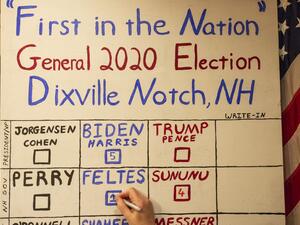 "First in the Nation"
General 2020 Election
Dixville Notch, NH
WRITE-IN
PRESIDENT/VP
JORGENSEN
COHEN
BIDEN
HARRIS
5
TRUMP
PENCE
NH GOV
PERRY
FELTES
1
SUNUNU
4
O'DONNELL
SHAHEEN
MESSNER